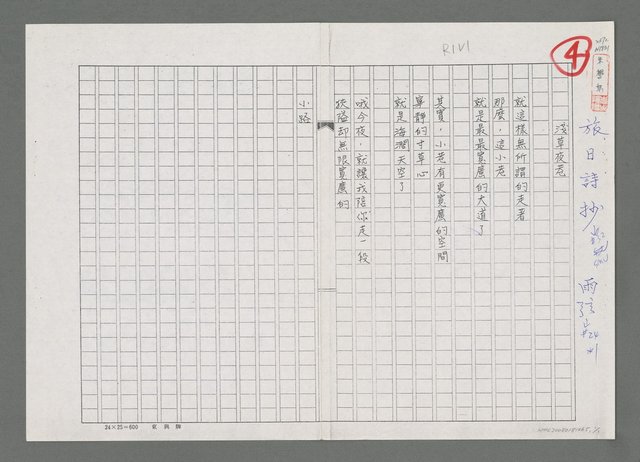 R1V1
4
旅日詩抄
淺草夜巷
就這樣無所謂的走著
那麼，這小巷
就是最最寬廣的大道了
其實，小巷有更寬廣的空間
寧靜的寸草心
就是海濶天空了
哦今夜，就讓我陪你走一段
狹隘却無限寬廣的
小路
24×25=600